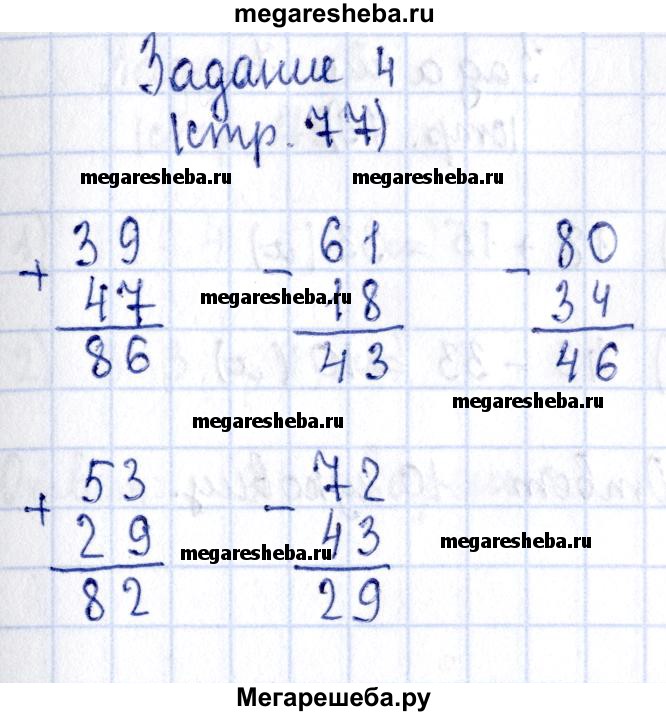 megaresheba.ru
Задание 4
(стр. 77)
megaresheba.ru megaresheba.ru
+ 39 - 61 - 80
47 18 34
megaresheba.ru
86 43 46
megaresheba.ru
megaresheba.ru
+ 53 - 72
29 43
megaresheba.ru megaresheba.ru
82 29
Мегарешеба.ру